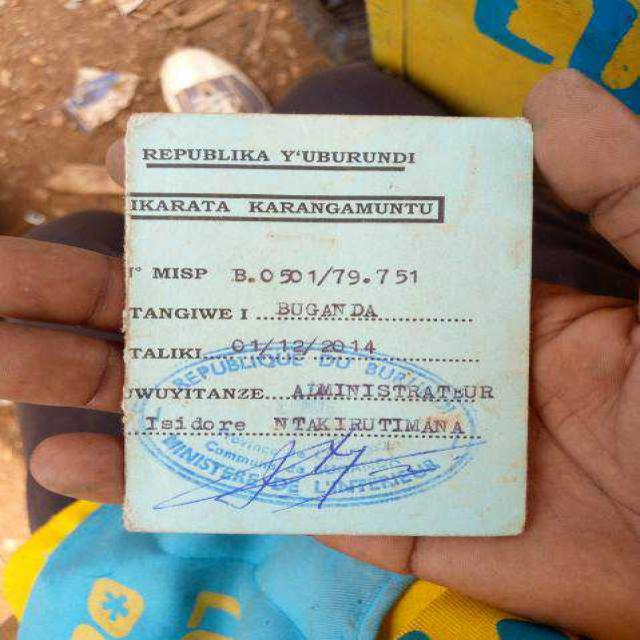 REPUBLIKA Y'UBURUNDI
IKARATA KARANGAMUNTU
° MISP B.0501/79.751
TANGIWE I BUGANDA
TALIKI 01/12/2014
WUYITANZE ADMINISTRATEUR
Isidore NTAKIRUTIMANA
REPUBLIQUE DU BURUNDI
MINISTERE DE L'INTERIEUR